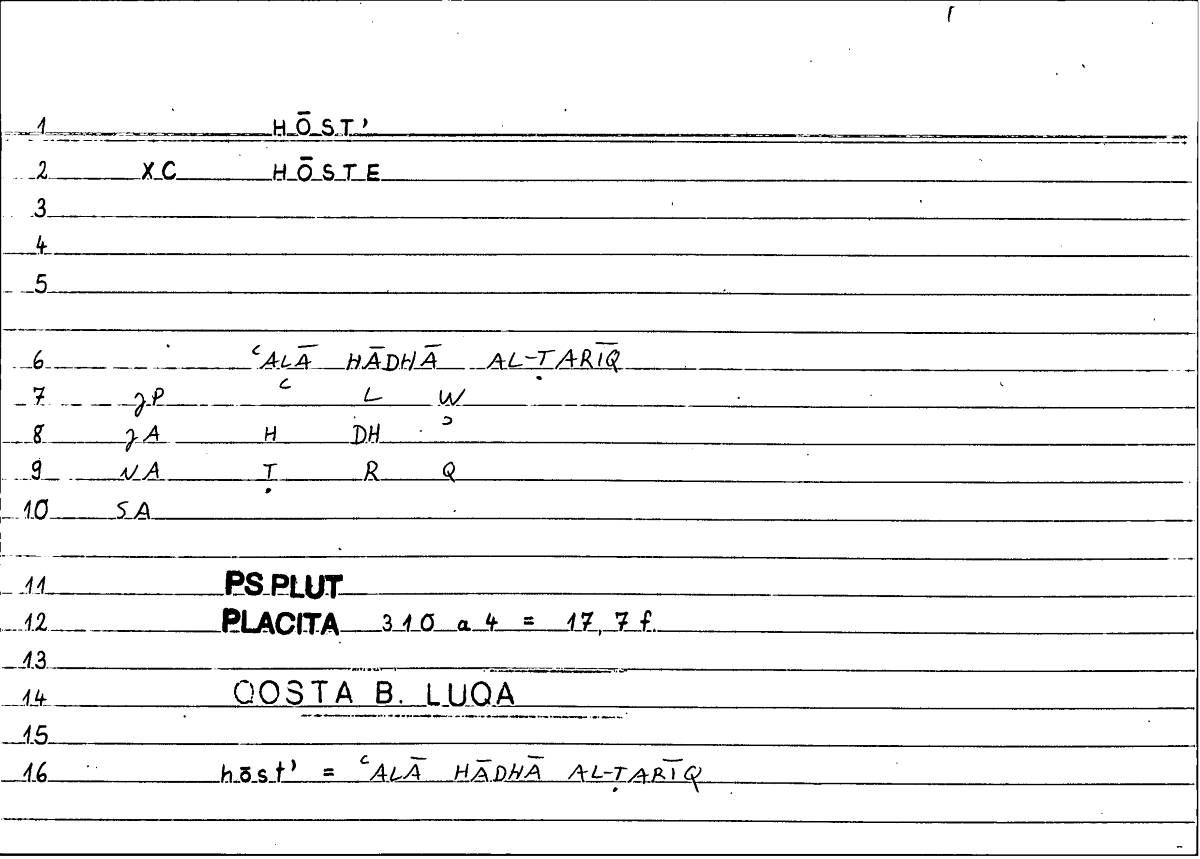 1 HŌST'
2 XC HŌSTE
3
4
5
6 ʿALĀ HĀDHĀ AL-ṬARĪQ
7 γP ʿ L W
8 γA H DH ʾ
9 NA Ṭ R Q
10 SA
11 PS PLUT
12 PLACITA 310 a 4 = 17, 7 f.
13
14 QOSTA B. LUQA
15
16 hōst' = ʿALĀ HĀDHĀ AL-ṬARĪQ